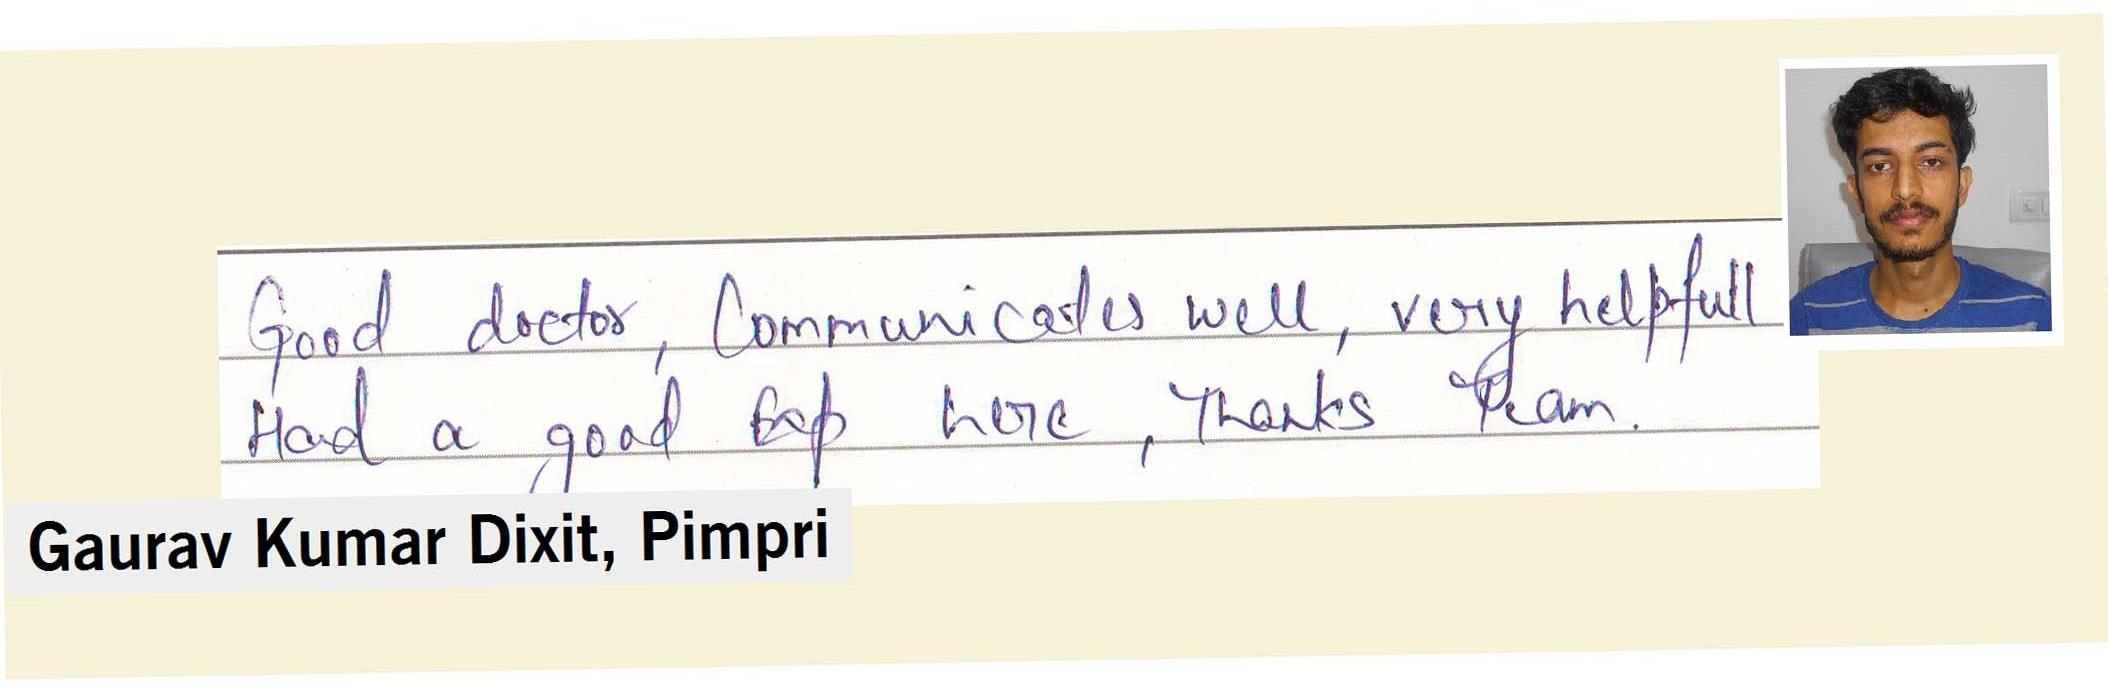 Good doctor, Communicates well, very helpfull
Had a good Exp here, Thanks Team.
Gaurav Kumar Dixit, Pimpri